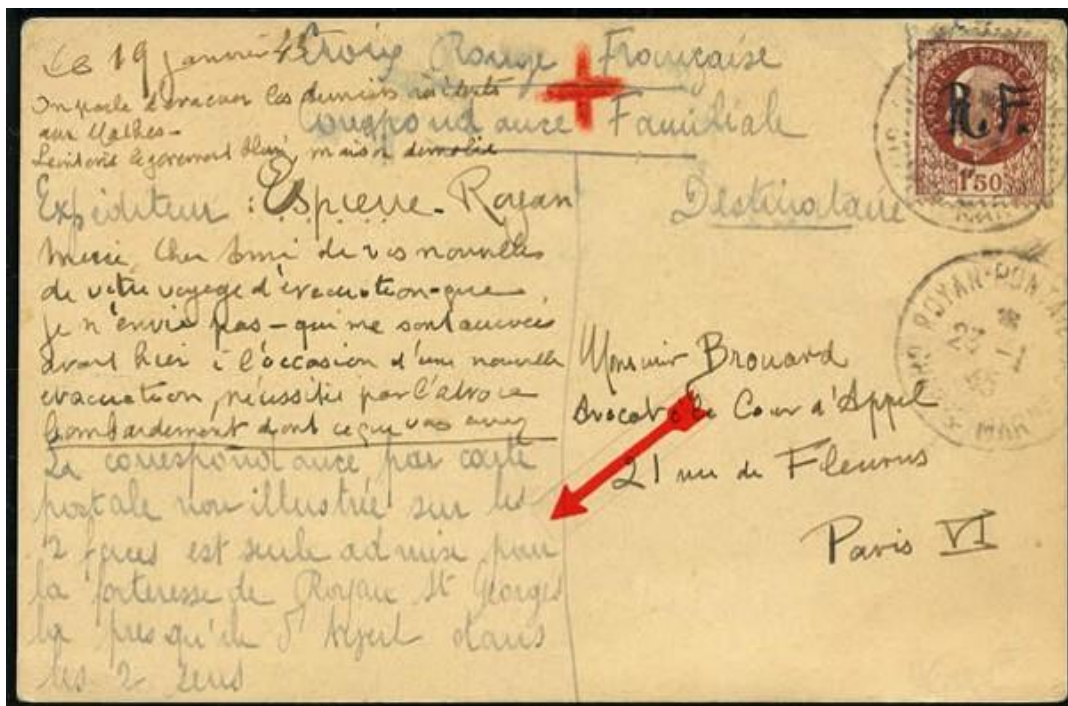 Le 19 janvier 45
Croix Rouge Française
Correspondance Familiale
On parle d'évacuer les derniers
aux Mathes -
maison démolie
Expéditeur : Espierre - Royan
Destinataire
Merci, Cher Ami de vos nouvelles
de votre voyage d'évacuation que
je n'envie pas - qui me sont arrivées
avant hier à l'occasion d'une nouvelle
évacuation, nécessitée par l'atroce
bombardement dont ce que vous avez
La correspondance par carte
postale non illustrée sur les
2 faces est seule admise pour
la forteresse de Royan St Georges
la presqu'île d'Arvert dans
les 2 sens
Monsieur Brouard
Avocat à la Cour d'Appel
21 rue de Fleurus
Paris VI
POSTES FRANÇAISES
R.F.
1F50
ROYAN-PONTAILLAC
22